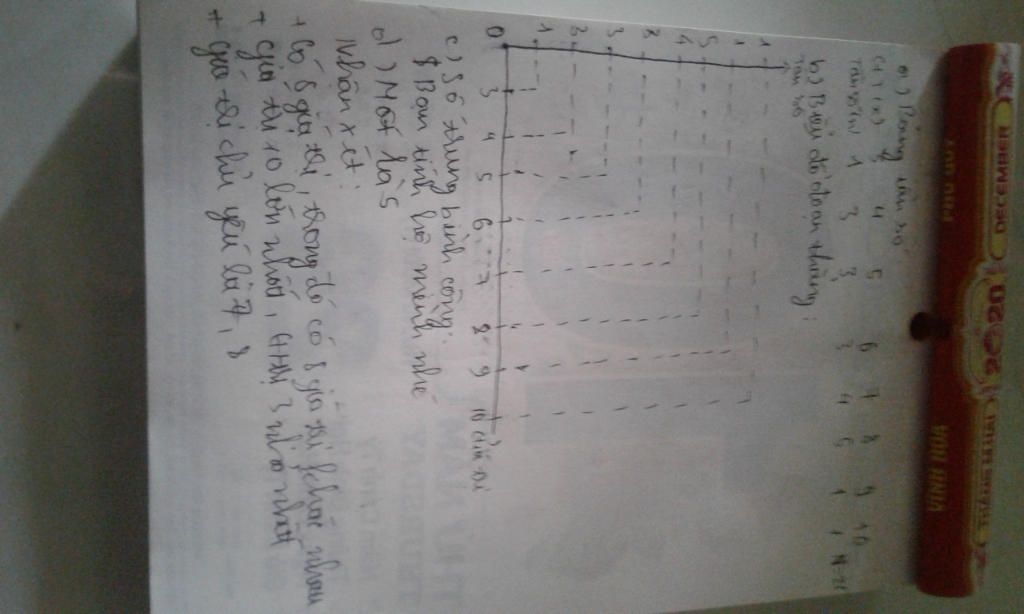 DECEMBER
2020
THÁNG MƯỜI HAI
PHÚ QUÝ
VINH HOA
a) Bảng tần số
(x) 4 5 6 7 8 9 10
Tần số (n) 1 3 3 3 4 5 1 1
b) Biểu đồ đoạn thẳng:
tần số
1
1
5
4
2
3
3
1
0 3 4 5 6 7 8 9 10
c) Số trung bình cộng:
$ Bạn tính hộ mình nhé
d) Mốt là 5
Nhận xét:
+ Có 8 giá trị, trong đó có 8 giá trị khác nhau
+ giá trị 10 lớn nhất, 3 nhỏ nhất
+ giá trị chủ yếu là 7, 8